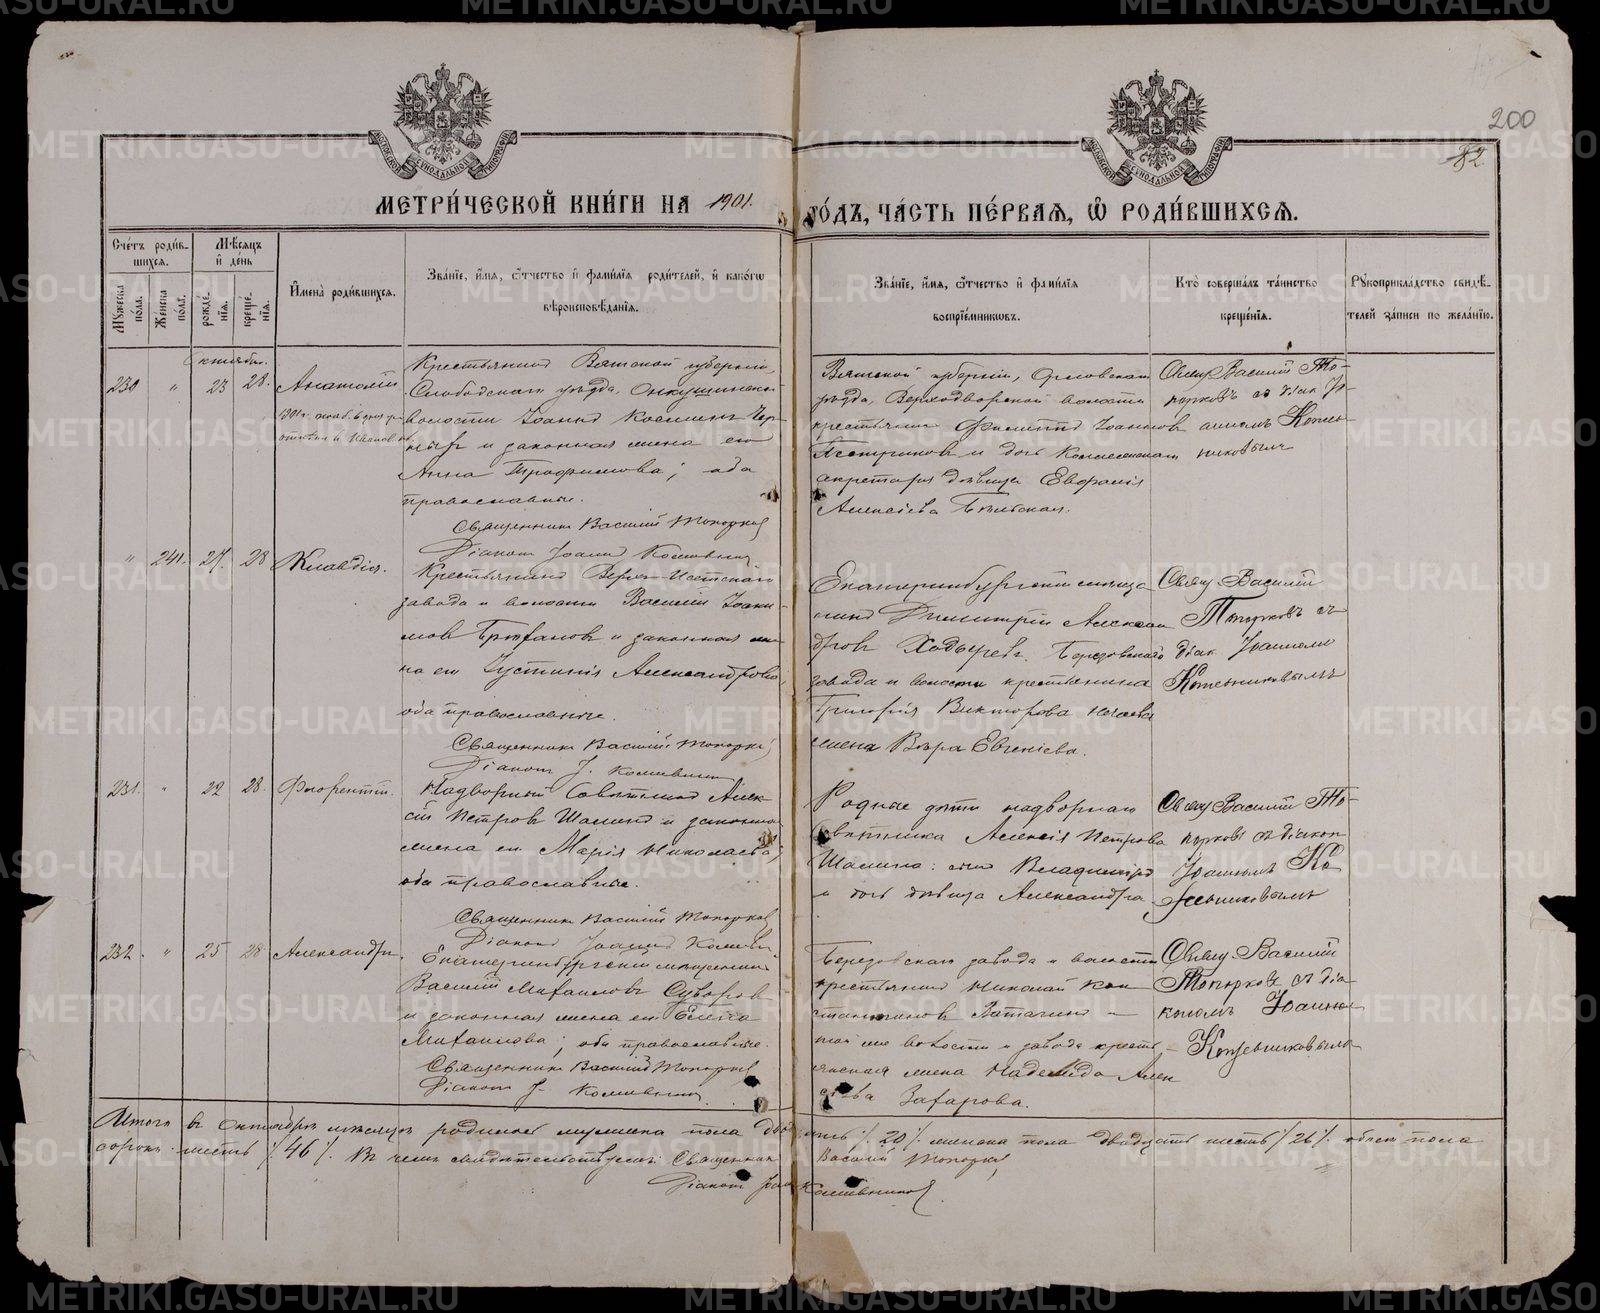 200
82
МЕТРИ́ЧЕСКОЙ КНИ́ГИ НА 1901. ГО́ДЪ, ЧА́СТЬ ПЕ́РВАЯ, Ѡ РОДИ́ВШИХСЯ.
Сче́тъ роди́в-
шихся.
Мꙋжеска
по́ла.
Же́нска
по́ла.
Мѣ́сяцъ
и҆ де́нь
рожде́-
нія.
креще́-
нія.
И҆мена̀ роди́вшихся.
Зва́ніе, и҆́мя, ѻ҆́тчество и҆ фами́лія роди́телей, и҆ како́гѡ
вѣроисповѣ́данія.
Зва́ніе, и҆́мя, ѻ҆́тчество и҆ фами́лія
воспріе́мниковъ.
Кто̀ соверша́лъ та́инство
креще́нія.
Рꙋкоприкла́дство свидѣ́-
телей за́писи по жела́нію.
Октябрь.
230 " 23 28. Анатолій
Крестьянинъ Вятской губерніи,
Слободскаго уѣзда,
волости Іоаннъ Козминъ Чер-
ныхъ и законная жена его
Анна Трофимова; оба
православные.
Священникъ Василій Топорковъ
Діаконъ Іоаннъ
Вятской губерніи, Орловскаго
уѣзда, Верходворской волости
крестьянинъ Филиппъ Іоанновъ
и дочь Коллежскаго
секретаря дѣвица Евфалія
Алексіева
Свящ. Василій То-
порковъ съ діак. Іо-
анномъ Кожев-
никовымъ
" 241. 27. 28 Клавдія.
Крестьянинъ Верхъ-Исетскаго
завода и волости Василій Іоаки-
мовъ и законная же-
на его Іустинія Александрова,
оба православные.
Священникъ Василій Топорковъ
Діаконъ І. Кожевниковъ
Екатеринбургскій мѣща-
нинъ Димитрій Алексан-
дровъ Ходыревъ. Березовскаго
завода и волости крестьянина
Григорія Викторова
жена Вѣра Евгеніева.
Свящ. Василій
Топорковъ съ
діак. Іоанномъ
Кожевниковымъ
231. " 22 28. Флорентій.
Надворный Совѣтникъ Алек-
сій Петровъ Шалинъ и законная
жена его Марія Николаева;
оба православные.
Священникъ Василій Топорковъ
Діаконъ Іоаннъ Кожевн.
Родные дѣти надворнаго
Совѣтника Алексія Петрова
Шалина: сынъ Владиміръ
и дочь дѣвица Александра.
Свящ. Василій То-
порковъ съ діакон.
Іоанномъ Ко-
жевниковымъ
232. " 25 28 Александръ.
Екатеринбургскій мѣщанинъ
Василій Михаиловъ Суворовъ
и законная жена его Елена
Михаилова; оба православные.
Священникъ Василій Топорковъ
Діаконъ І. Кожевниковъ
Березовскаго завода и волости
крестьянинъ Николай Кон-
стантиновъ и
той же волости и завода кресть-
янская жена Надежда Алек-
сіева Захарова.
Свящ. Василій
Топорковъ съ діа-
кономъ Іоанномъ
Кожевниковымъ
Итого въ Октябрѣ мѣсяцѣ родилось мужеска пола двадцать /. 20 /. женска пола двадцать шесть /. 26 /. обоего пола
сорокъ шесть /. 46 /. Въ чемъ свидѣтельствуемъ: Священникъ Василій Топорковъ
Діаконъ Іоаннъ Кожевниковъ.